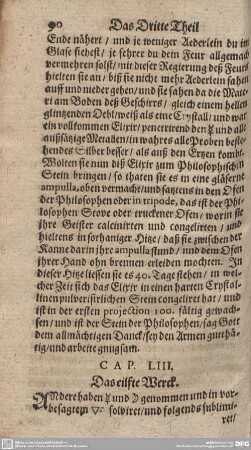 90 Das Dritte Theil
Ende nähert / und je weniger Aederlein du im
Glase siehest / je sehrer du dein Feur allgemach
vermehren solst / mit dieser Regierung deß Feurs
hielten sie an / biß sie nicht mehr Aederlein sahen
auff und nieder gehen / und sie sahen da die Mate-
ri am Boden deß Geschirrs / gleich einem hellen
glintzenden Oehl / weiß als eine Crystall / und war
ein vollkommen Elixir / penetrirend den ☿ und alle
außsätzige Metallen / in wahres alle Proben beste-
hendes Silber besser / als auß den Ertzen kombt.
Wolten sie nun diß Elixir zum Philosophischen
Stein bringen / so thaten sie es in eine gläserne
ampulla, oben vermacht / und satztens in den Ofen
der Philosophen oder in tripode, das ist der Phi-
losophen Stove oder truckener Ofen / worin sie
ihre Geister calcinirten und congelirten / und
hieltens in sorhaniger Hitze / daß sie zwischen der
Kanne darin ihre ampulla stund / und dem Ofen
ihrer Hand ohn brennen erleiden mochten. In
dieser Hitze liessen sie es 40. Tage stehen / in wel-
cher Zeit sich das Elixir in einen harten Crystal-
linen pulverisirlichen Stein congeliret hat / und
ist in der ersten projection 100. fältig gewach-
sen / und ist der Stein der Philosophen / sag Gott
dem allmächtigen Danck / sey den Armen gutthä-
tig / und arbeite gnugsam.
CAP. LIII.
Das eilfte Werck.
Andere haben ☿ und ☽ genommen und in vor-
besagtem ▽ solviret / und folgends sublimi-
ret /